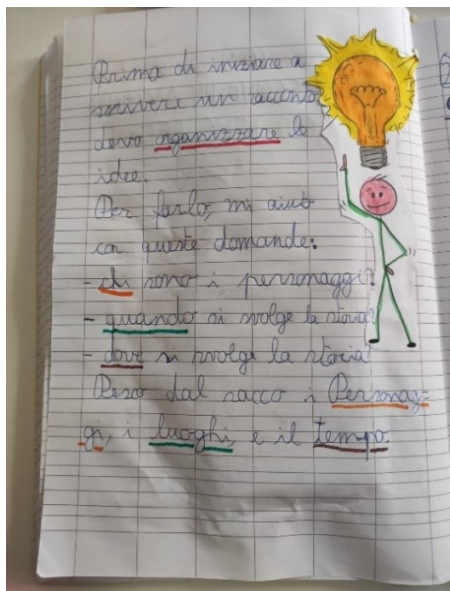 Prima di iniziare a
scrivere un racconto
devo organizzare le
idee.
Per farlo, mi aiuto
con queste domande:
- chi sono i personaggi?
- quando si svolge la storia?
- dove si svolge la storia?
Peso dal sacco i Personag-
gi, i luoghi, e il tempo.